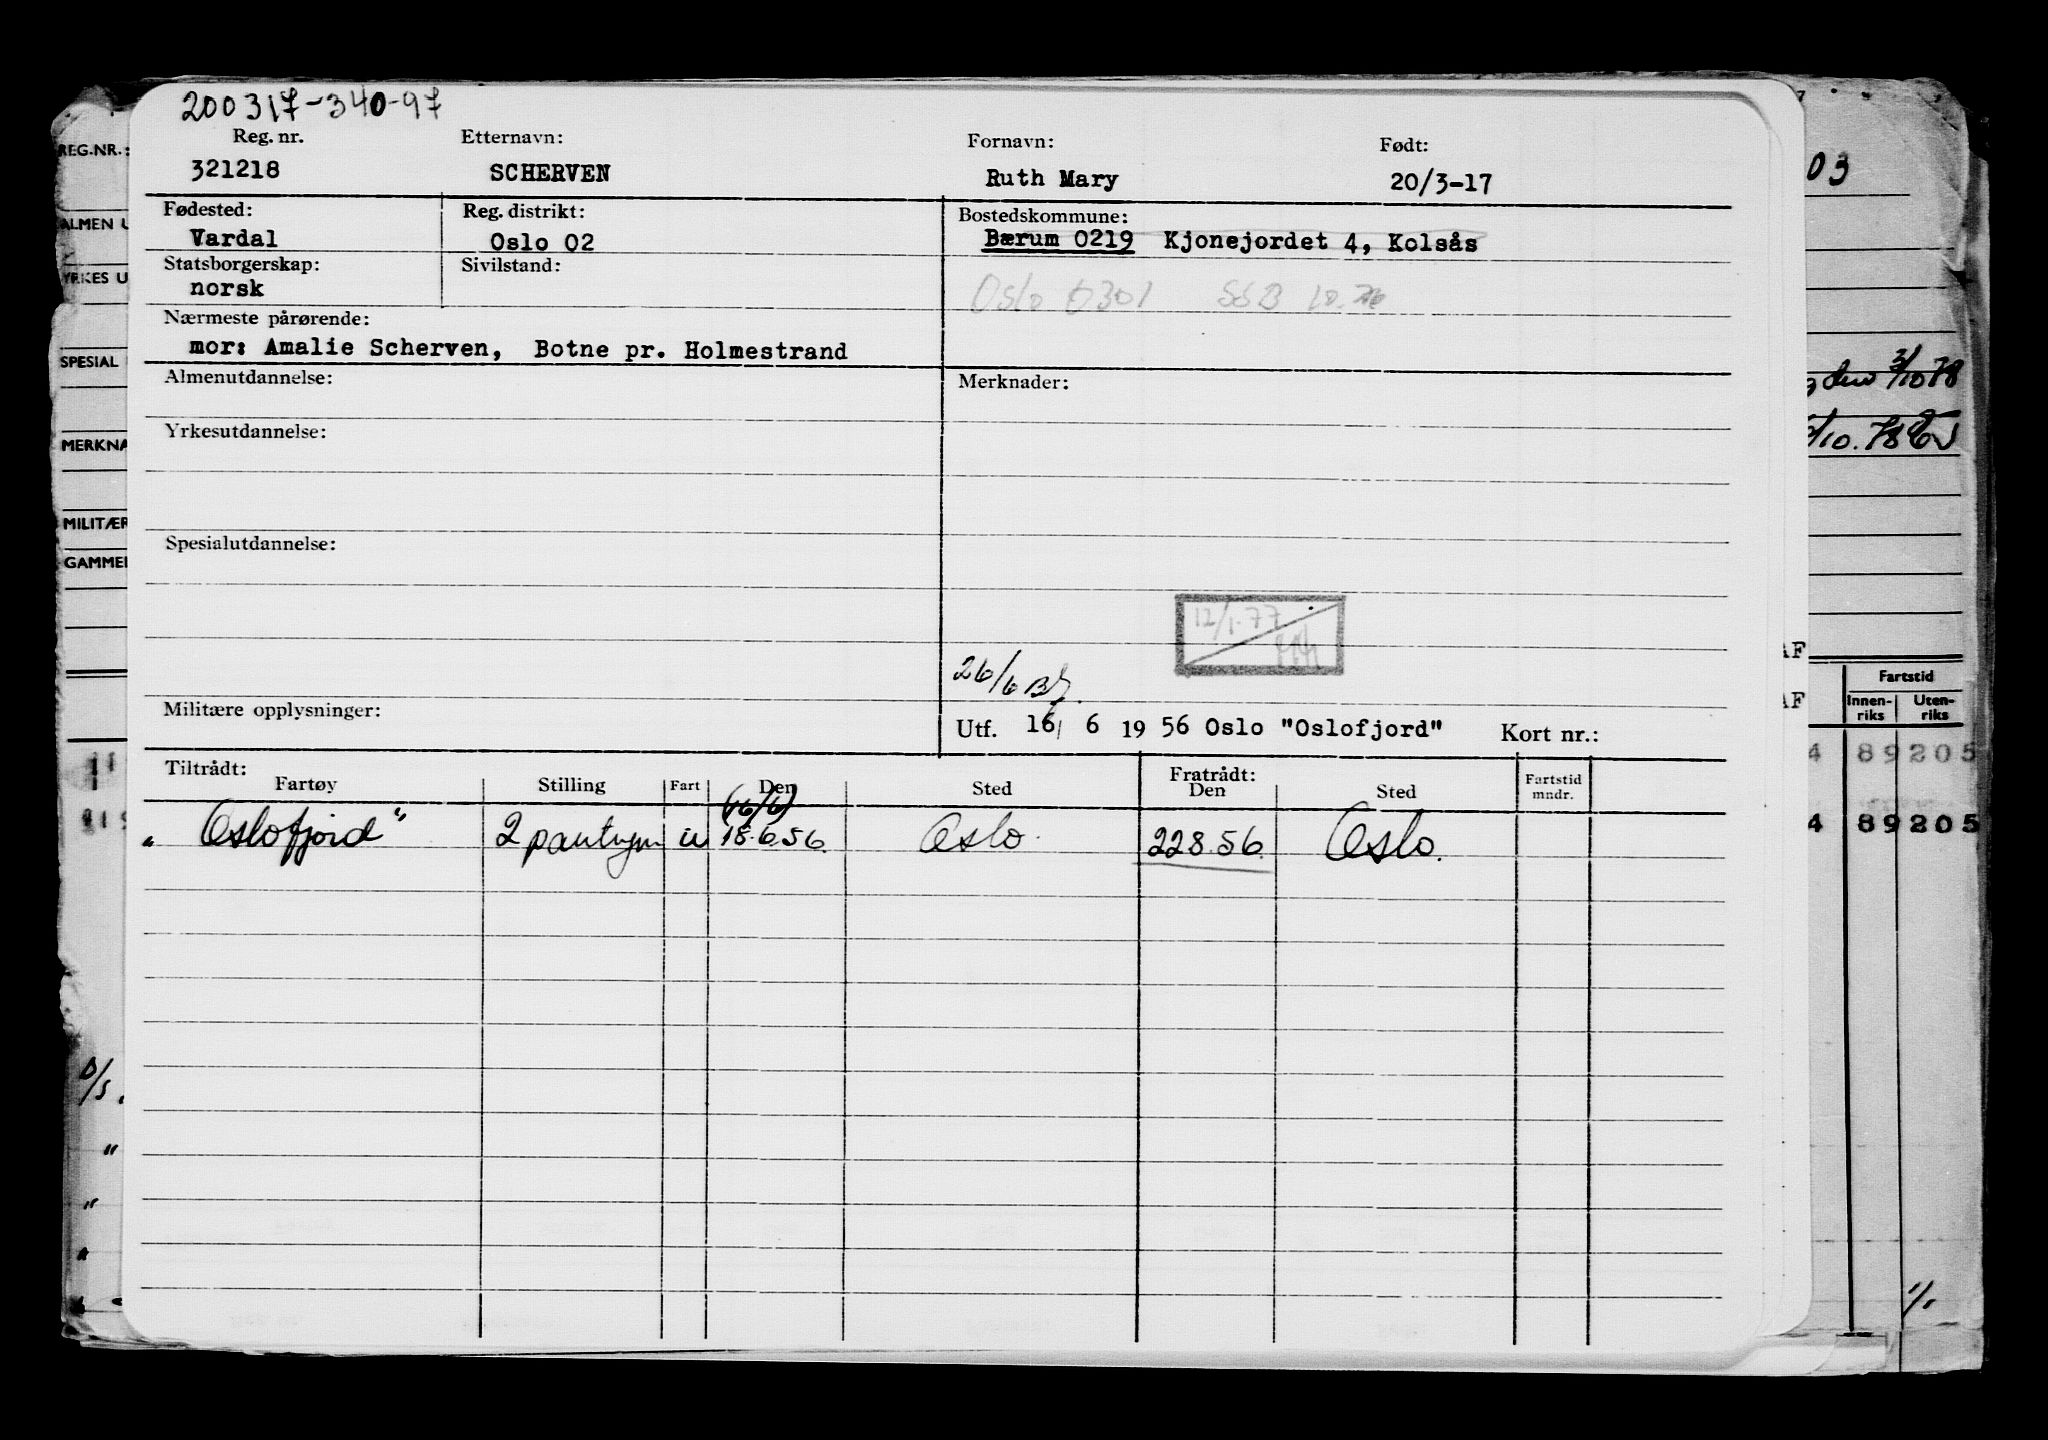 200317-340-97
Reg. nr. Etternavn: Fornavn: Født:
321218 SCHERVEN Ruth Mary 20/3-17
Fødested: Reg. distrikt: Bostedskommune:
Vardal Oslo 02 Bærum 0219 Kjonejordet 4, Kolsås
Statsborgerskap: Sivilstand:
norsk
Oslo 0301 SSB 10.76
Nærmeste pårørende:
mor: Amalie Scherven, Botne pr. Holmestrand
Almenutdannelse: Merknader:
Yrkesutdannelse:
Spesialutdannelse:
12/1.77
26/6
Militære opplysninger:
Utf. 16/ 6 19 56 Oslo "Oslofjord" Kort nr.:
Tiltrådt: Fratrådt:
Fartøy Stilling Fart Den Sted Den Sted Fartstid mndr.
(16/6)
"Oslofjord" 2 pantrym u 18.6.56. Oslo 22856. Oslo.
REG.NR.:
ALMEN U
YRKES U
SPESIAL
MERKNA
MILITÆR
GAMMEL
03
3/10 78
/10.78
AF
Fartstid
AF
Innenriks Utenriks
4 89205
4 89205